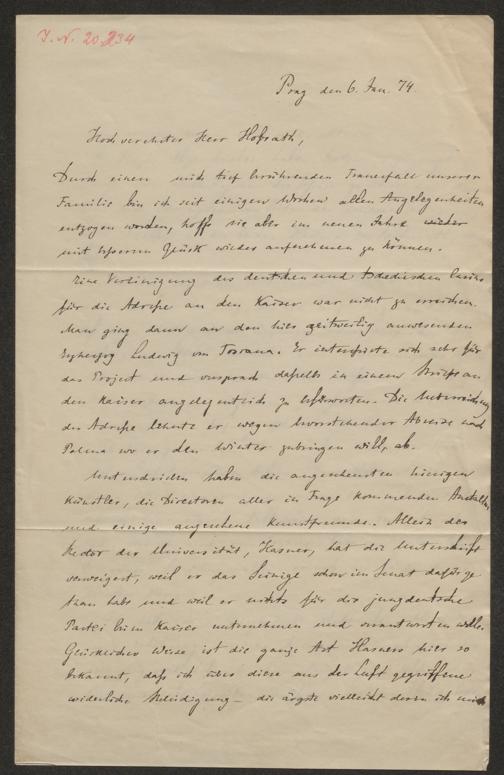 I. N. 20.234
Prag den 6. Jan. 74.
Hochverehrter Herr Hofrath,
Durch einen mich tief berührenden Trauerfall unserer
Familie bin ich seit einigen Wochen allen Angelegenheiten
entzogen worden, hoffe sie aber im neuen Jahre wieder
mit besserem Glück wieder aufnehmen zu können.
Eine Vereinigung des deutschen und tschechischen
für die Adresse an den Kaiser war nicht zu erreichen.
Man ging dann an den hier zeitweilig anwesenden
Erzherzog Ludwig von Toscana. Er interessirte sich sehr für
das Project und versprach dasselbe in einem Briefe an
den Kaiser angelegentlich zu befürworten. Die Unterzeichnung
der Adresse lehnte er wegen bevorstehender Abreise nach
Palma wo er den Winter zubringen will, ab.
Unterschrieben haben die angesehensten hiesigen
Künstler, die Directoren aller in Frage kommenden Anstalten
und einige angesehene Kunstfreunde. Allein der
Rector der Universität, Hasner, hat die Unterschrift
verweigert, weil er das Seinige schon im Senat dafür ge
than habe und weil er nichts für die jungdeutsche
Partei beim Kaiser unternehmen und verantworten wolle.
Glücklicher Weise ist die ganze Art Hasners hier so
bekannt, daß ich über diese aus der Luft gegriffene
widerliche Beleidigung – die ärgste vielleicht deren ich mich